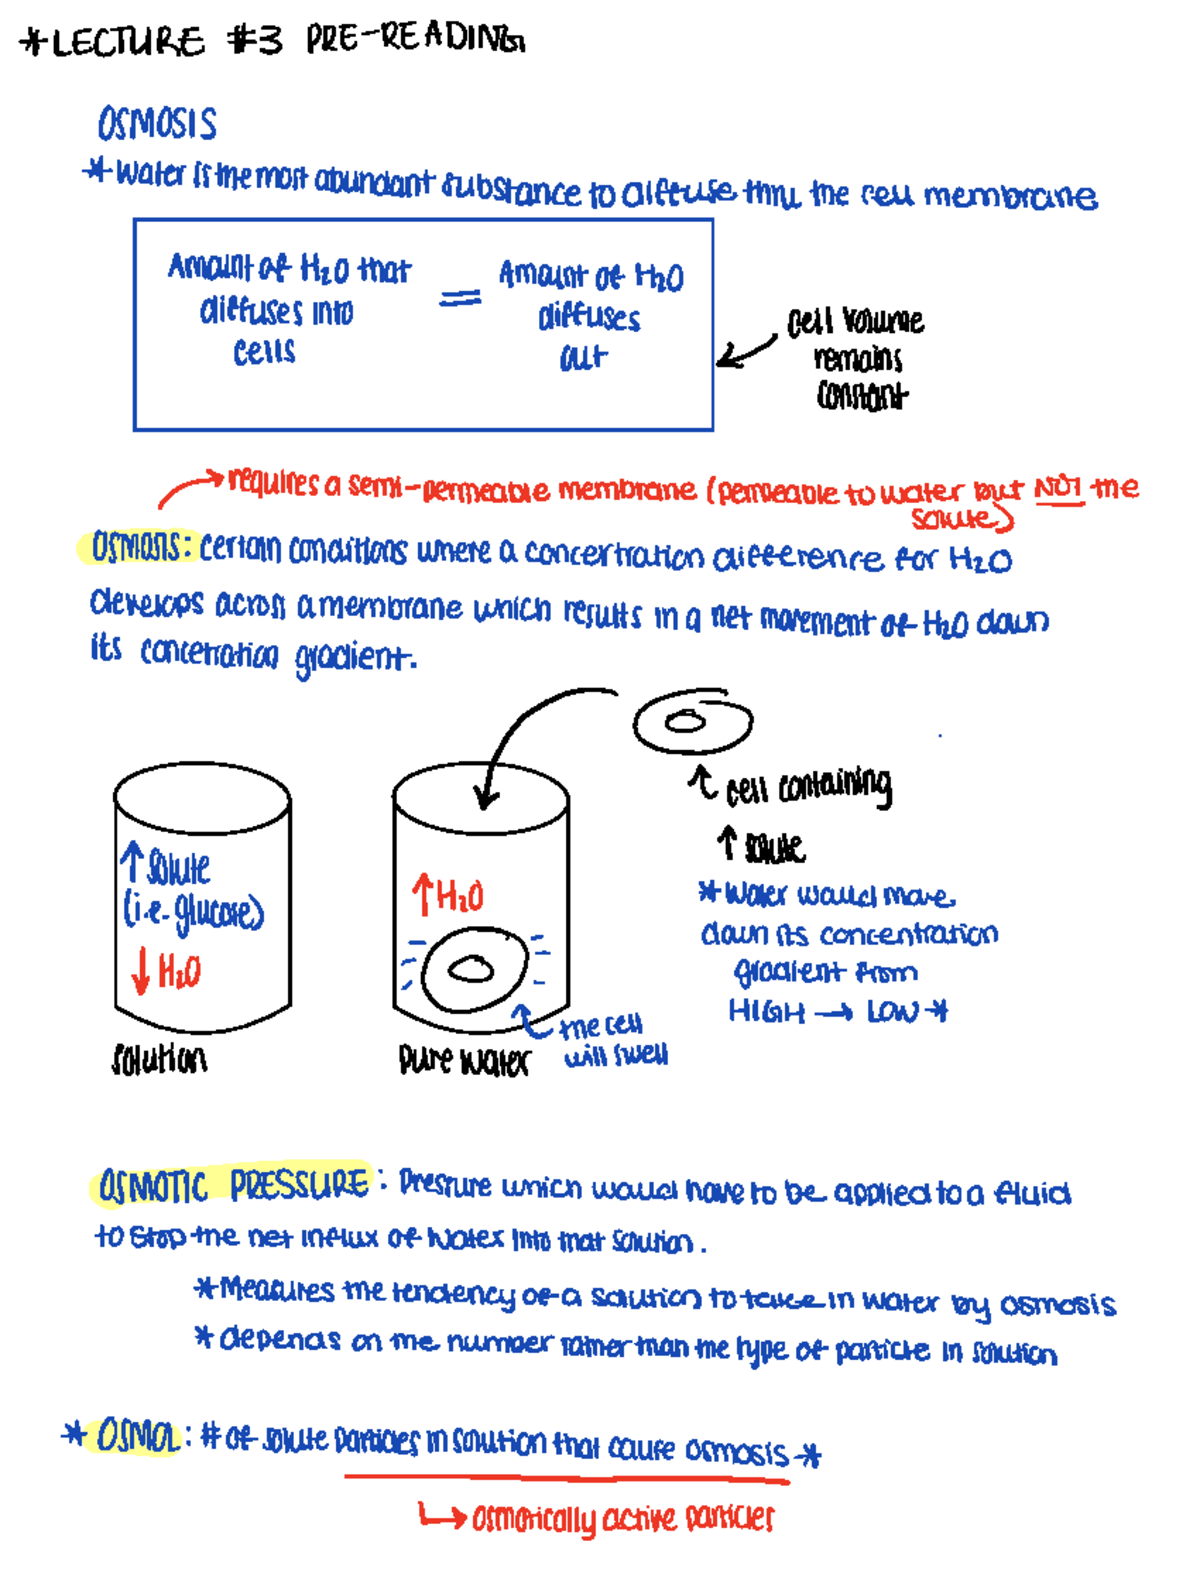 *LECTURE #3 PRE-READING
OSMOSIS
*Water is the most abundant substance to diffuse thru the cell membrane
Amount of H₂O that
diffuses into
cells
=
Amount of H₂O
diffuses
out
cell volume
remains
constant
→requires a semi-permeable membrane (permeable to water but NOT the
solute)
OSMOSIS: certain conditions where a concertration difference for H₂O
develops across a membrane which results in a net movement of H₂O down
its concetration gradient.
↑ cell containing
↑ solute
*Water would move
down its concentration
gradient from
HIGH → LOW*
↑ solute
(i.e. glucose)
↓ H₂O
solution
↑H₂O
pure water
the cell
will swell
OSMOTIC PRESSURE: Pressure which would have to be applied to a fluid
to stop the net influx of water into that solution.
*Measures the tendency of a solution to take in water by osmosis
*depends on the number rather than the type of particle in solution
* OSMOL: # of solute particles in solution that cause osmosis *
↳ osmotically active particles